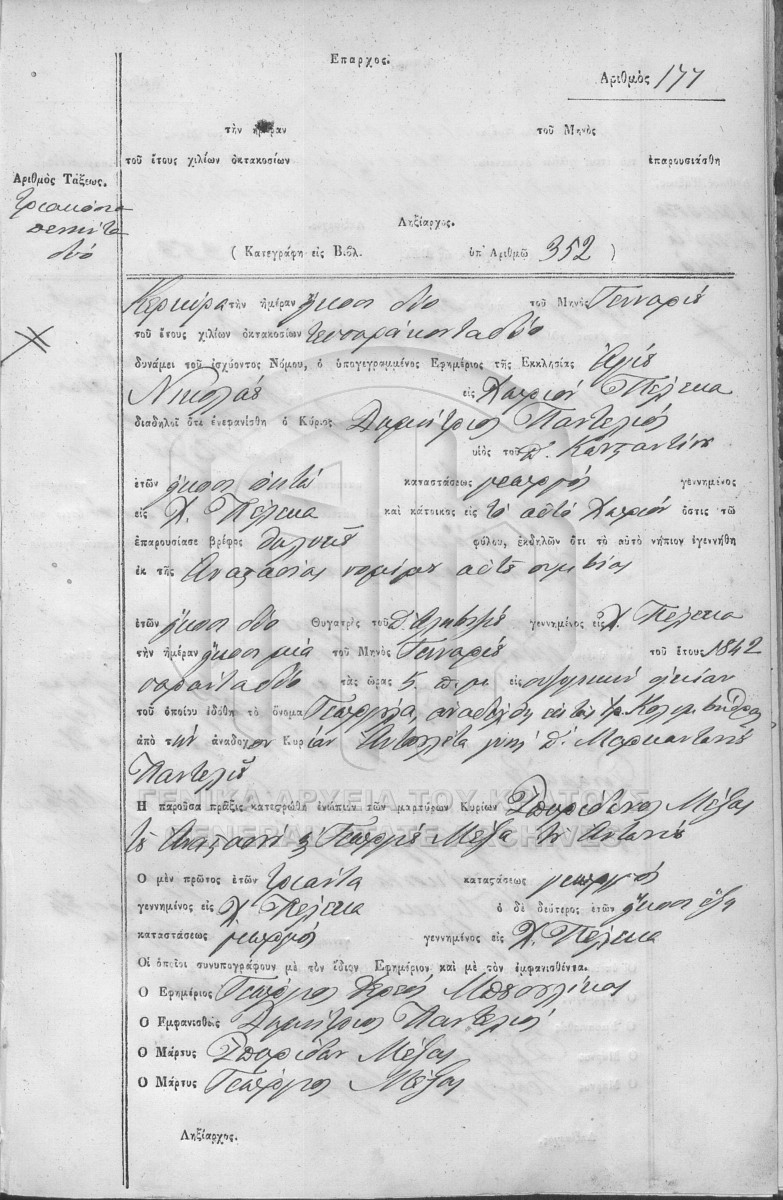 Επαρχος.
Αριθμὸς 177
τὴν ἡμέραν τοῦ Μηνὸς
τοῦ ἔτους χιλίων ὀκτακοσίων ἐπαρουσιάσθη
Αριθμὸς Τάξεως.
τριακόσια
πενήντα
δύο
Ληξίαρχος.
( Κατεγράφη εἰς Βιβλ. ὑπ' Αριθμῷ 352 )
Κερκύρα τὴν ἡμέραν ἤκοσι δύο τοῦ Μηνὸς Γενναρίου
τοῦ ἔτους χιλίων ὀκτακοσίων τεσσαράκοντα δύο
δυνάμει τοῦ ἰσχύοντος Νόμου, ὁ ὑπογεγραμμένος Εφημέριος τῆς Εκκλησίας Αγίου
Νικολάου εἰς Χωρίον Πέλεκα
διαδηλοῖ ὅτι ἐνεφανίσθη ὁ Κύριος Δημήτριος Παντελιός
υἱὸς τοῦ Κωνσταντίνου
ἐτῶν ἤκοσι ὀκτώ καταστάσεως γεωργός γεννημένος
εἰς Χ. Πέλεκα καὶ κάτοικος εἰς το αυτό Χωρίον ὅστις τῷ
ἐπαρουσίασε βρέφος θηλυκού φύλου, ἐκδηλῶν ὅτι τὸ αὐτὸ νήπιον ἐγεννήθη
ἐκ τῆς Αναστασίας νομίμου αυτού συμβίας
ἐτῶν ἤκοσι δύο Θυγατρὸς τοῦ γεννημένος εἰς Χ. Πέλεκα
τὴν ἡμέραν ἤκοσι μιά τοῦ Μηνὸς Γενναρίου τοῦ ἔτους 1842
σαράντα δύο τὰς ὥρας 5. π. μ. εἰς οικίαν
τοῦ ὁποίου ἐδόθη τὸ ὄνομα Γεωργία,
ἀπὸ τὴν ἀνάδοχον Κυρίαν Αντονέτα Μαρκαντωνίου
Παντελιού
ΓΕΝΙΚΑ ΑΡΧΕΙΑ ΤΟΥ ΚΡΑΤΟΥΣ
GENERAL STATE ARCHIVES
Η παροῦσα πρᾶξις κατεστρώθη ἐνώπιον τῶν μαρτύρων Κυρίων Σπυρίδωνος Μέξας
του Αναστασίου και Γεωργίου Μέξα του Αντωνίου
Ο μὲν πρῶτος ἐτῶν τριάντα καταστάσεως γεωργός
γεννημένος εἰς Χ. Πέλεκα ὁ δὲ δεύτερος ἐτῶν ἤκοσι έξη
καταστάσεως γεωργός γεννημένος εἰς Χ. Πέλεκα
Οἱ ὁποῖοι συνυπογράφουν μὲ τὸν ἴδιον Εφημέριον καὶ μὲ τὸν ἐμφανισθέντα.
Ο Εφημέριος Γεώργιος Ιερεύς
Ο Εμφανισθεὶς Δημήτριος Παντελιός
Ο Μάρτυς Σπυρίδων Μέξας
Ο Μάρτυς Γεώργιος Μέξας
Ληξίαρχος.